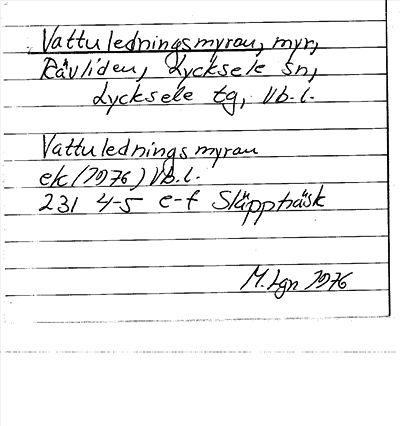 Vattuledningsmyran, myr,
Rävliden, Lycksele sn,
Lycksele tg, Vb.l.
Vattuledningsmyran
ek (1976) Vb.l.
231 4-5 e-f Släppträsk
M. Lgn 1976